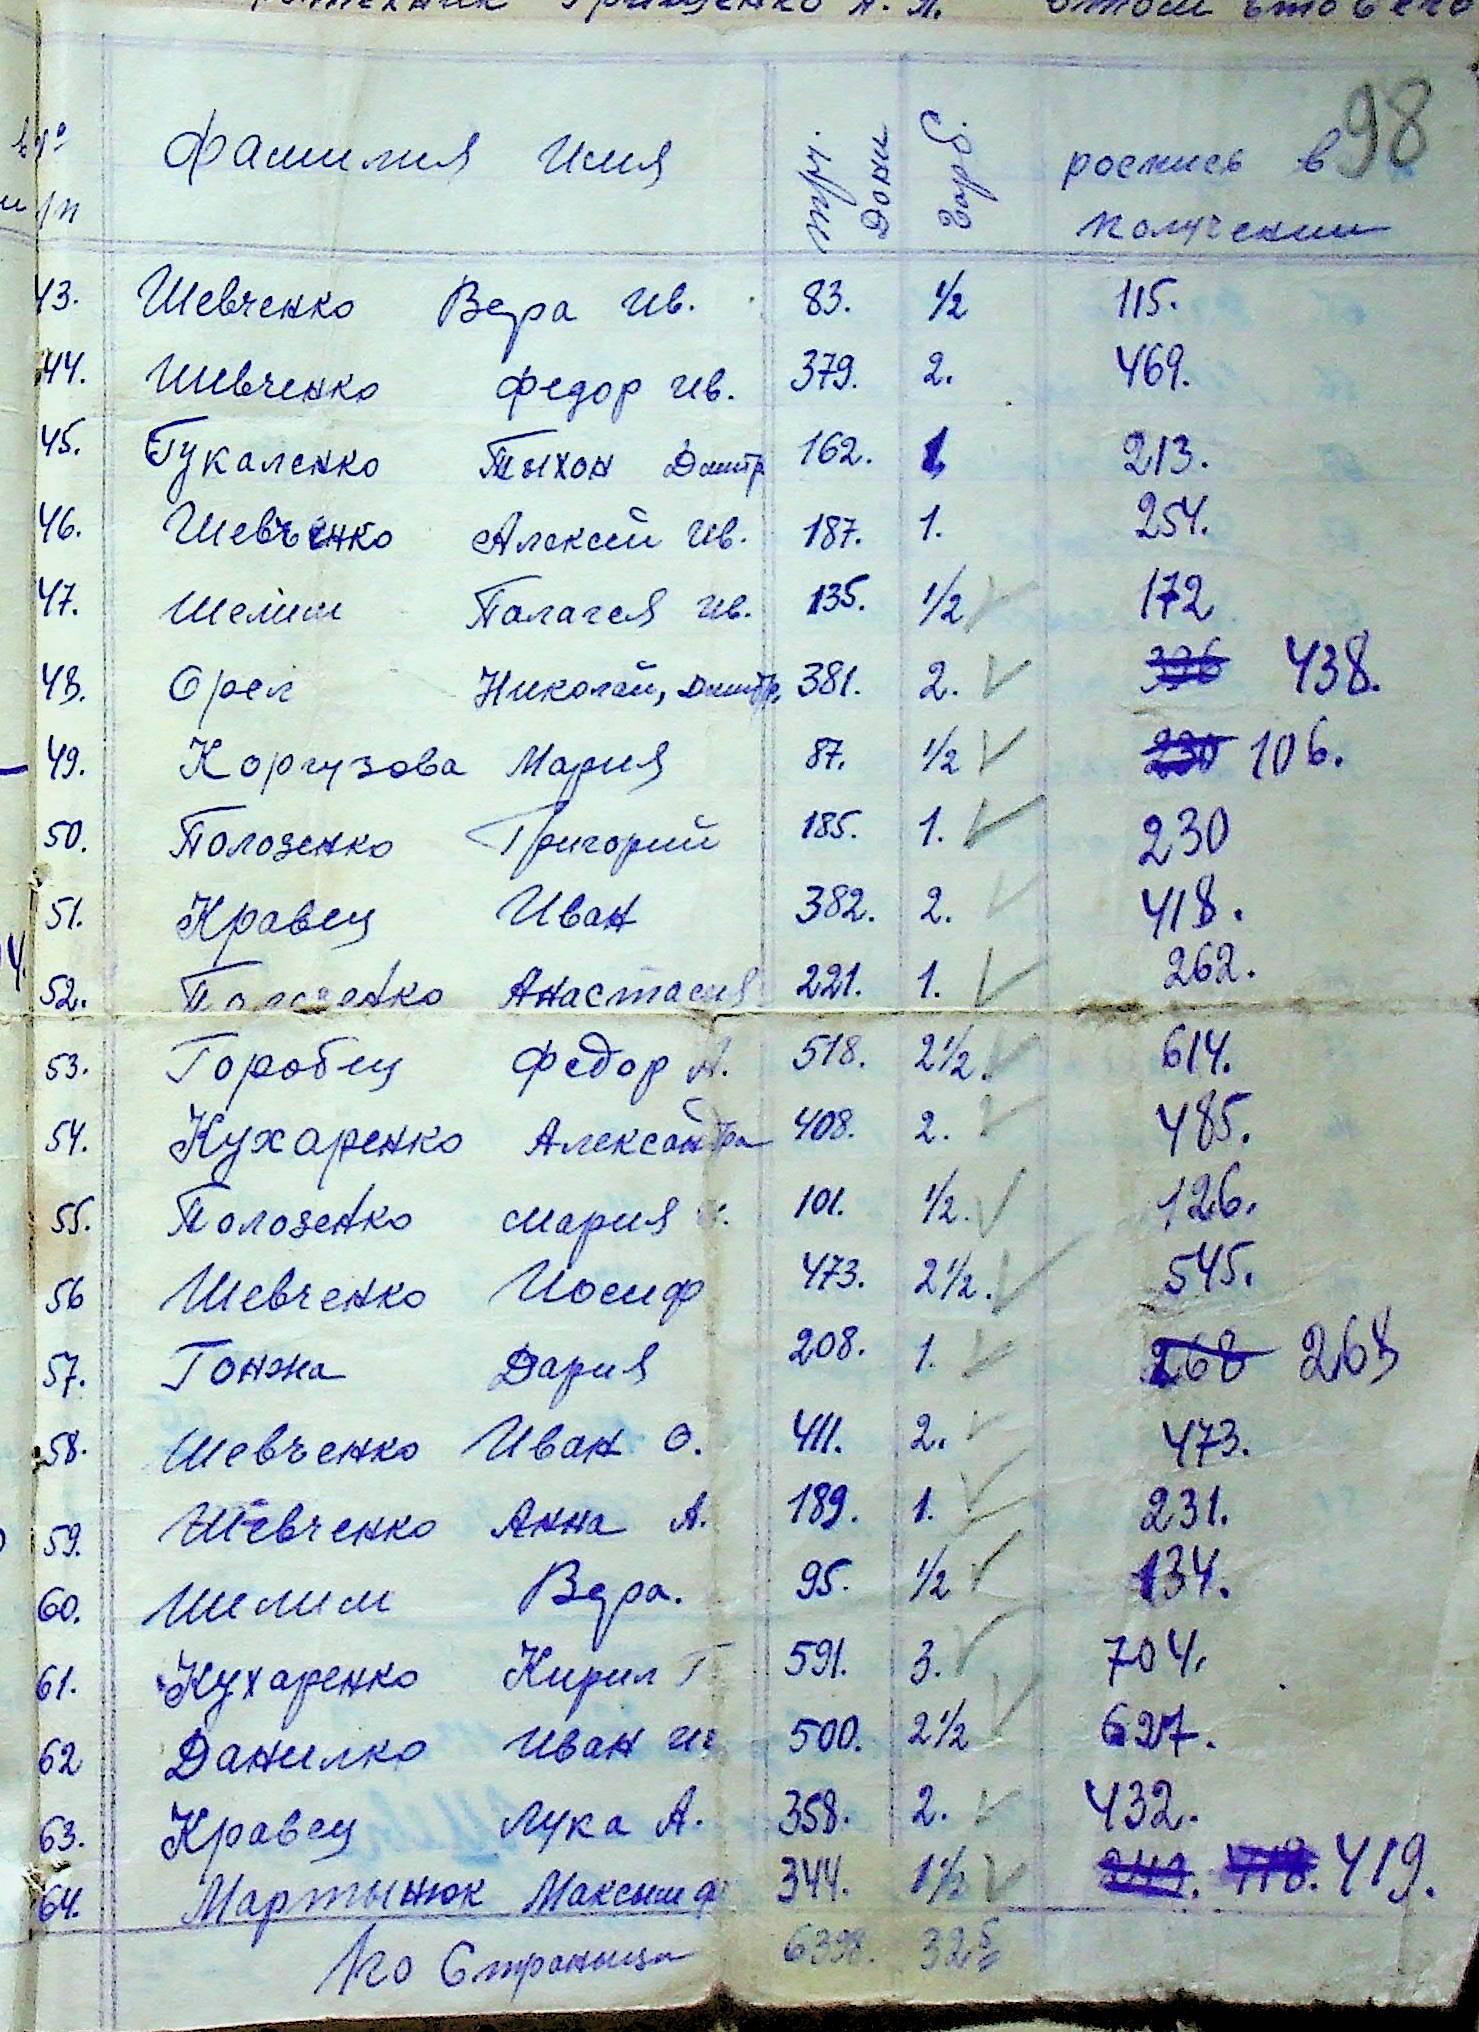 Грищенко А. Л.
98
№ Фамилия Имя труд. Дони Зарб. роспись в
п/п получении
43. Шевченко Вера Ив. 83. 1/2 115.
44. Шевченко Федор Ив. 379. 2. 469.
45. Гукаленко Тыхон Дмитр 162. 1 213.
46. Шевченко Алексей Ив. 187. 1. 254.
47. Шелим Палагея Ив. 135. 1/2 172
48. Орел Николай, Дмитр. 381. 2. 336 438.
49. Коргузова Мария 87. 1/2 230 106.
50. Полозенко Григорий 185. 1. 230
51. Кравец Иван 382. 2. 418.
52. Полозенко Анастасия 221. 1. 262.
53. Горобец Федор А. 518. 2 1/2. 614.
54. Кухаренко Александра 408. 2. 485.
55. Полозенко Мария 101. 1/2. 126.
56 Шевченко Иосиф 473. 2 1/2. 545.
57. Гонжа Дария 208. 1. 268 268
58. Шевченко Иван О. 411. 2. 473.
59. Шевченко Анна А. 189. 1. 231.
60. Шелим Вера. 95. 1/2 134.
61. Кухаренко Кирил Г 591. 3. 704.
62 Данилко Иван Ив 500. 2 1/2 627.
63. Кравец Лука А. 358. 2. 432.
64. Мартынюк Максим Ф 344. 1 1/2 418. 419.
1го Страныца 6398. 32